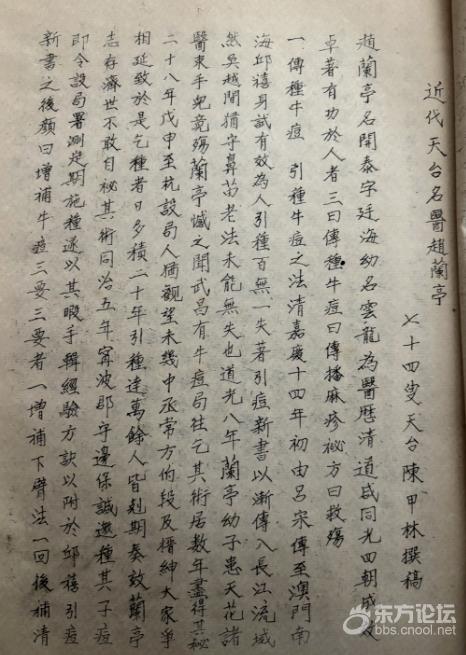 近代天台名醫趙蘭亭
七十四叟天台陳甲林撰稿
趙蘭亭名開泰字廷海幼名雲龍為醫歷清道咸同光四朝成效
卓著有功於人者三曰傳種牛痘曰傳播麻疹祕方曰救殤
一傳種牛痘 引種牛痘之法清嘉慶十四年初由呂宋傳至澳門南
海邱禧身試有效為人引種百無一失著引痘新書以漸傳入長江流域
然吳越間猶守鼻苗老法未能無失也道光八年蘭亭幼子患天花諸
醫束手兒竟殤蘭亭憾之聞武昌有牛痘局往乞其術居數年盡得其秘
二十八年戊申至杭設局人猶觀望未幾中丞常方伯段及搢紳大家爭
相延致於是乞種者日多積二十年引種達萬餘人皆剋期奏效蘭亭
志存濟世不敢自祕其術同治五年甯波郡守邊保誠邀種其子痘
即令設局署測定期施種遂以其暇手輯經驗方訣以附於邱禧引痘
新書之後顏曰增補牛痘三要三要者一增補下臂法一回後補清
东方论坛
bbs.cnool.net